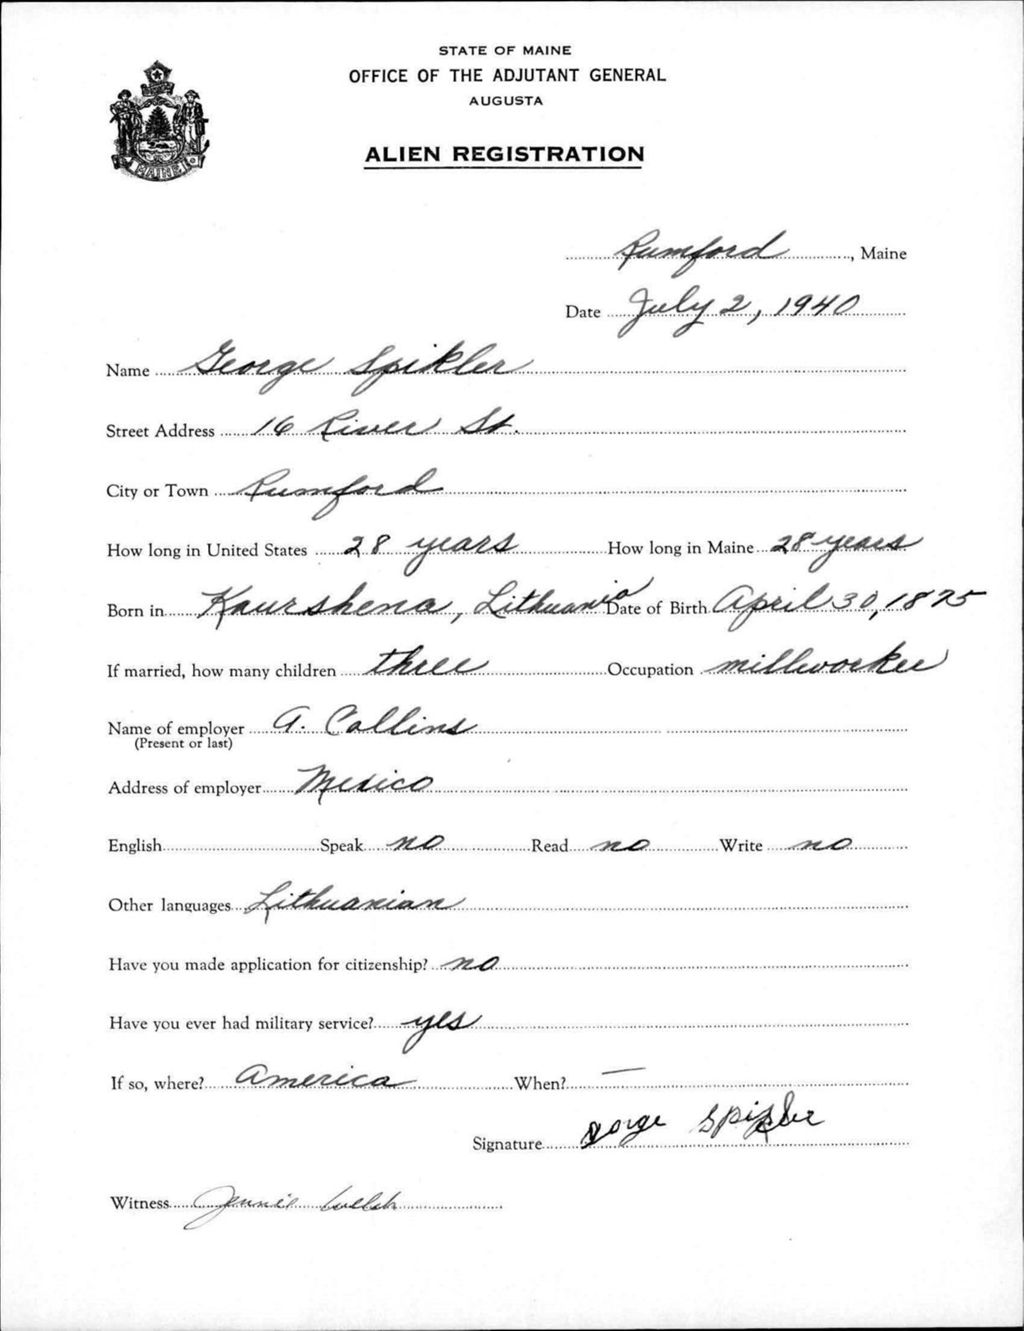 STATE OF MAINE
OFFICE OF THE ADJUTANT GENERAL
AUGUSTA
ALIEN REGISTRATION
MAINE
Rumford, Maine
Date July 2, 1940
Name George Spikler
Street Address 16 River St.
City or Town Rumford
How long in United States 28 years How long in Maine 28 years
Born in Kaurshena, Lithuania Date of Birth April 30, 1875
If married, how many children three Occupation millworker
Name of employer A. Collins
(Present or last)
Address of employer Mexico
English Speak no Read no Write no
Other languages Lithuanian
Have you made application for citizenship? no
Have you ever had military service? yes
If so, where? America When? —
Signature Gorge Spikler
Witness Jennie Welsh